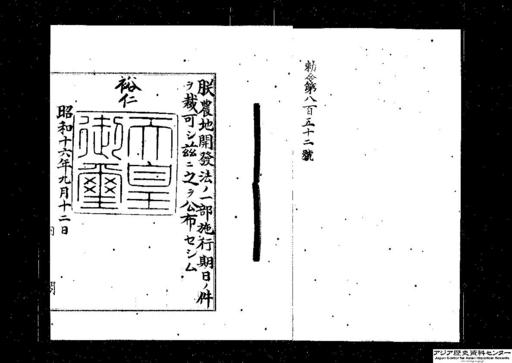 勅令第八百五十二號
朕農地開發法ノ一部施行期日ノ件
ヲ裁可シ茲ニ之ヲ公布セシム
裕仁
天皇
御璽
昭和十六年九月十二日
アジア歴史資料センター
Japan Center for Asian Historical Records